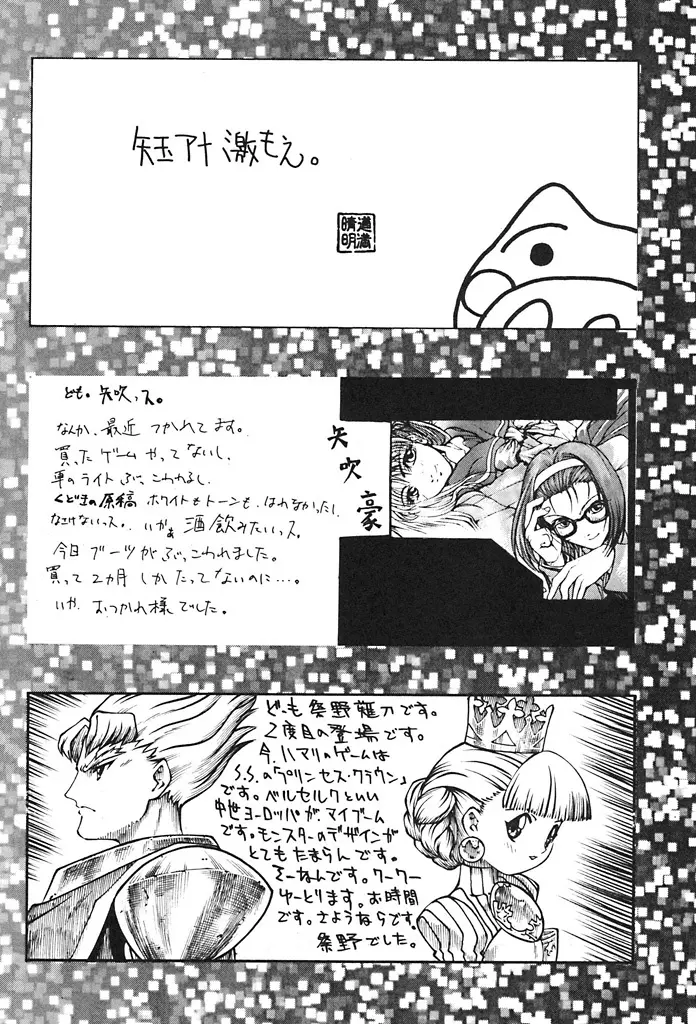 短玉アナ 激もえ。
道満
晴明
ども。矢吹っス。
なんか、最近 つかれてます。
買ったゲーム やってないし、
車のライト ぶっこわれるし、
くど玉の原稿 ホワイトもトーンも、はれなかったし、
なさけないっス。いかぁ 酒飲みたいっス。
今日 ブーツが ぶっこわれました。
買って2カ月 しかたってないのに…。
いや、おつかれ様でした。
矢吹豪
ども祭野薙刀です。
2度目の登場です。
今、ハマりのゲームは
S.S.の「プリンセス・クラウン」
です。ベルセルクといい
中世ヨーロッパが、マイブーム
です。モンスターのデザインが
とてもたまらんです。
そーなんです。クークー
ゆーとります。お時間
です。さようならです。
祭野でした。